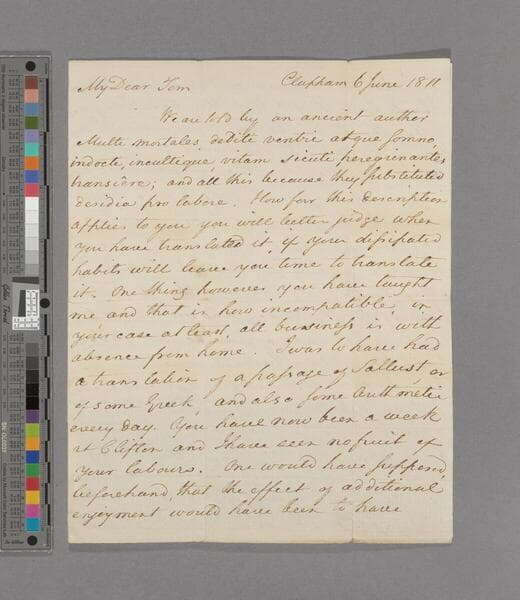 My Dear Tom Clapham 6 June 1811
We are told by an ancient author
Multi mortales, dediti ventri atque somno,
indocti, incultique, vitam sicuti peregrinantes
transiere; and all this because they substituted
desidia pro labore. How far this description
applies to you you will better judge when
you have translated it, if your dissipated
habits will leave you time to translate
it. One thing however you have taught
me and that is how incompatible, in
your case at least, all business is with
absence from home. I was to have had
a translation of a passage of Sallust or
of some Greek, and also some Arithmetic
every day. You have now been a week
at Clifton and I have seen no fruit of
your labours. One would have supposed
beforehand, that the effect of additional
enjoyment would have been to have